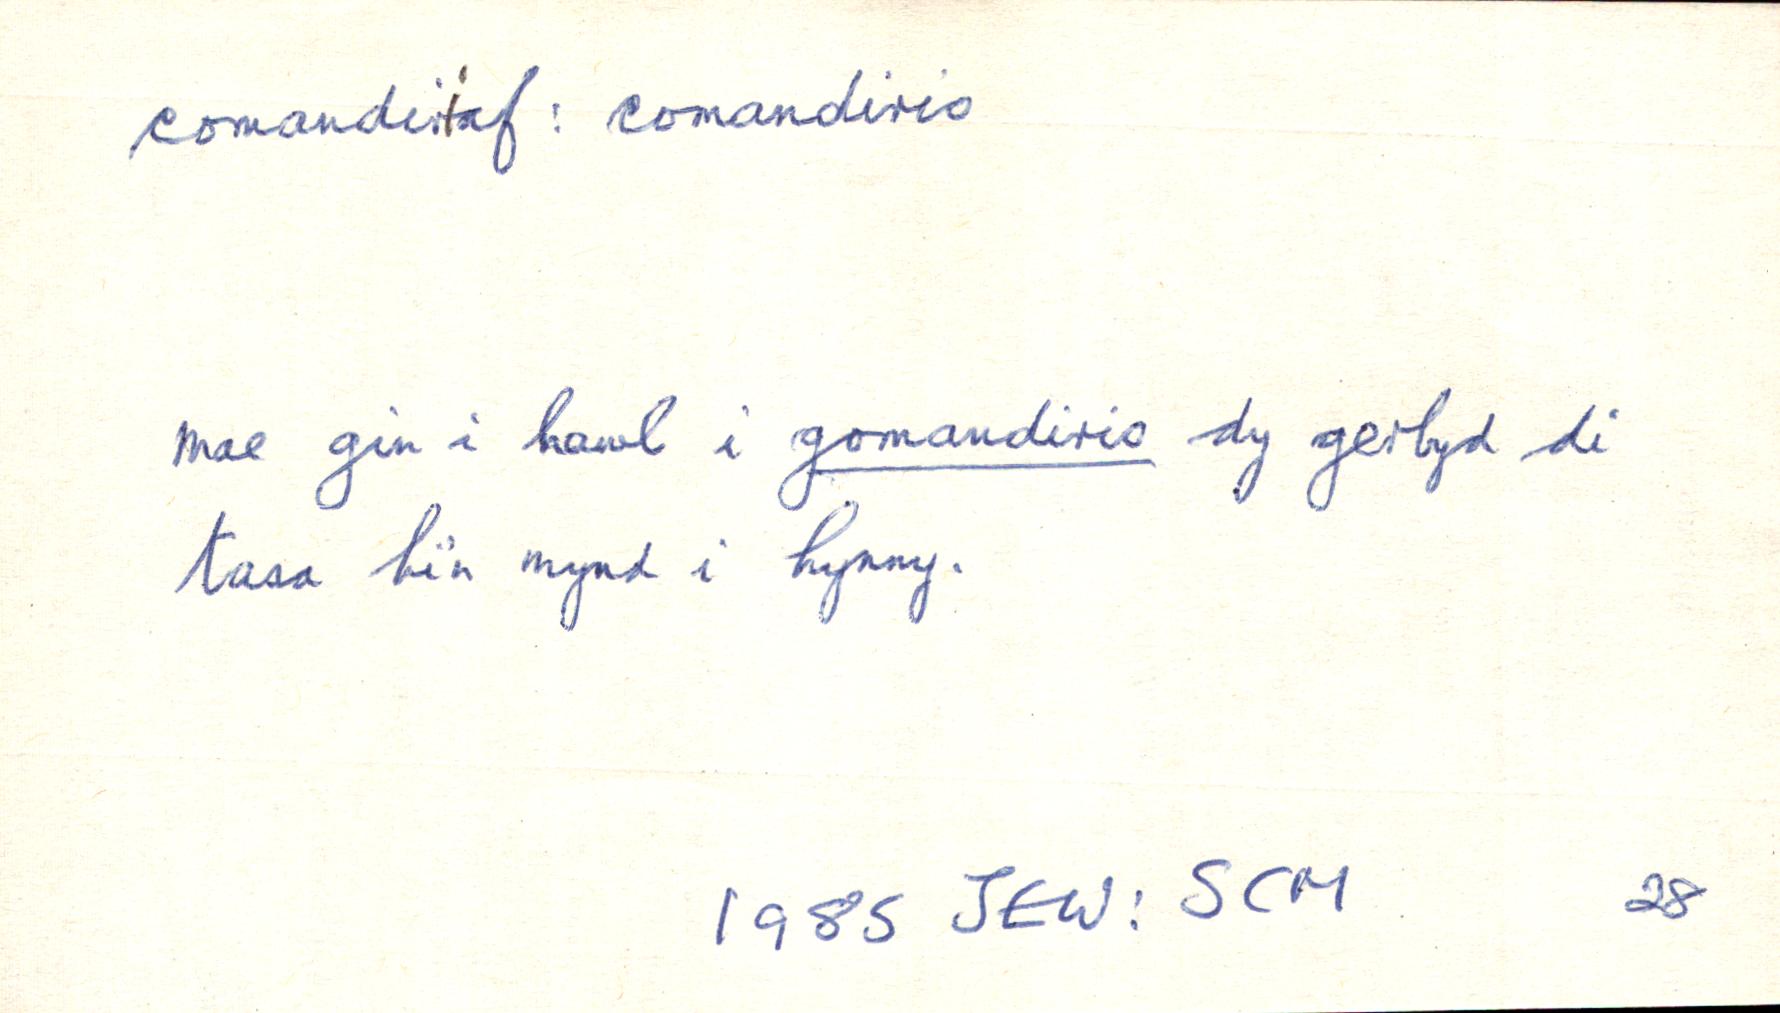 comandiriaf : comandirio
mae gin i hawl i gomandirio dy gerbyd di
tasa hi'n mynd i hynny.
1985 JEW: SCM 28